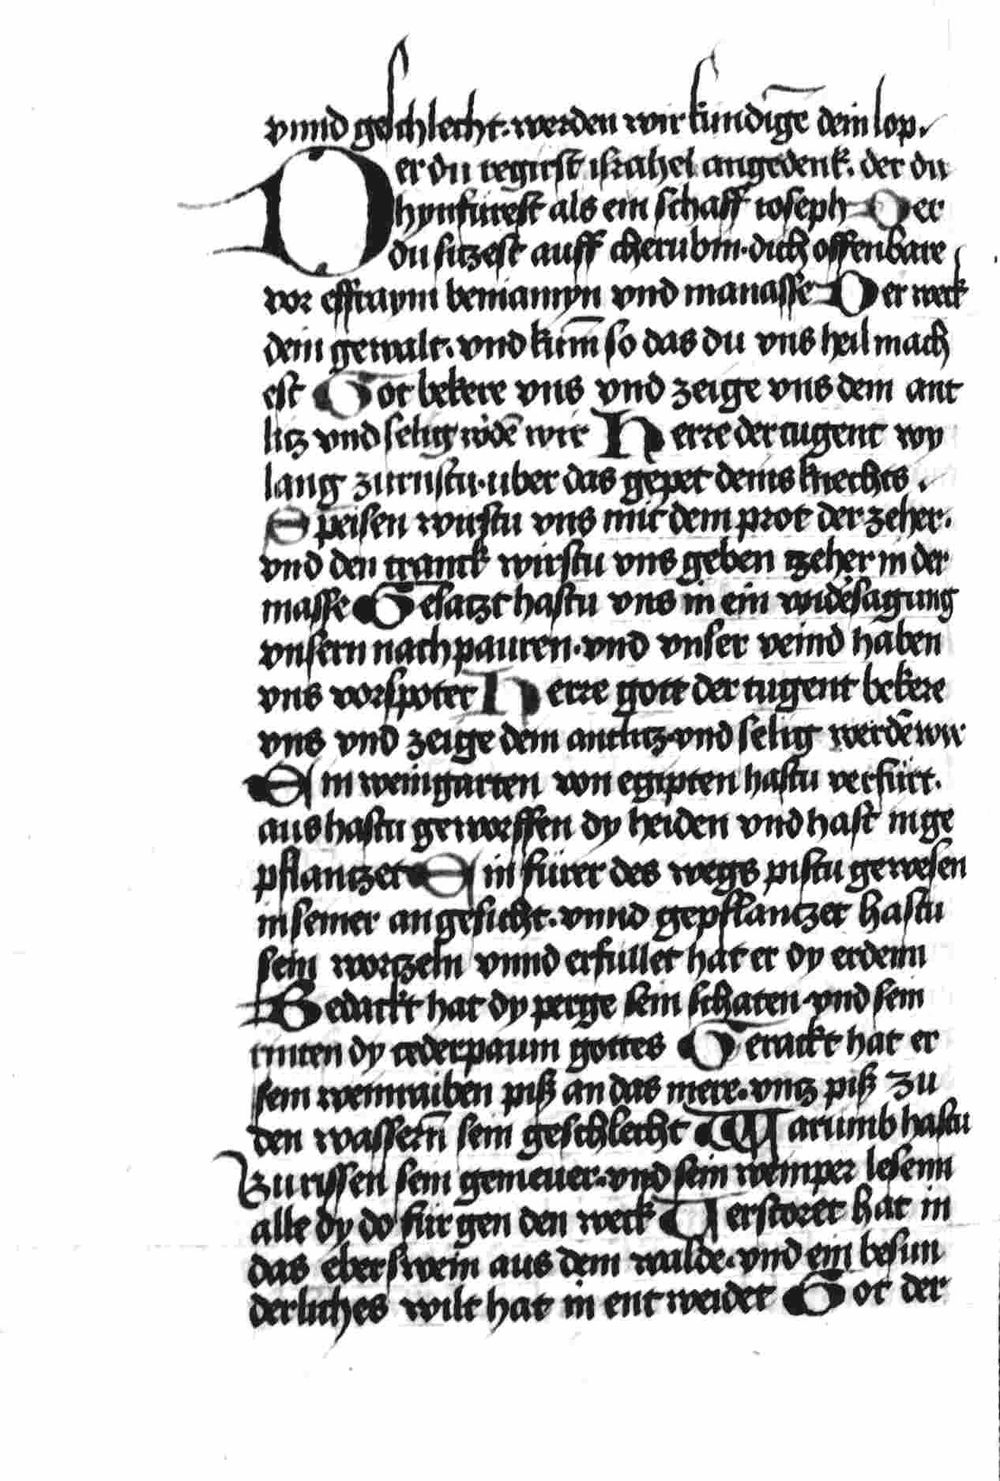 vnnd geschlecht. werden wir kundigē dein lop.
Der du regirst israhel angedenk. der du
hynfurest als ein schaff ioseph Der
du sitzest auff cherubin. dich offenbare
vor effraym beniamyn vnd manasse Der weck
dein gewalt. vnd kūm so das du vns heil mach
est Got bekere vns vnd zeige vns dein ant
litz vnd selig wdē wir Herre der tugent wy
lang zurnstu. uber das gepet deins knechts.
Speisen wirstu vns mit dem prot der zeher.
vnd den tranck wirstu vns geben tzeher in der
masse Gesatzt hastu vns in ein widesagung
vnsern nachpauren. vnd vnser veind haben
vns vorspotet Herre gott der tugent bekere
vns vnd zeige dein antlitz. vnd selig werdē wir
Ein weingarten von egipten hastu verfürt.
aus hastu geworffen dy heiden vnd hast in ge
pflantzet Ein fürer des wegs pistu gewesen
in seiner angesicht. vnnd gepflantzet hastu
sein wortzeln vnnd erfullet hat er dy erdenn
Bedackt hat dy perge sein schaten. vnd sein
rinten dy cederpaum gottes Gerackt hat er
sein weinraiben piß an das mere. vntz piß zu
den wasserñ sein geschlecht Warumb hastu
Zurissen sein gemeuer. vnd sein weinper lesenn
alle dy do für gen den weck Verstoret hat in
das eberswein aus dem walde. vnd ein besun
derliches wilt hat in entweidet Got der